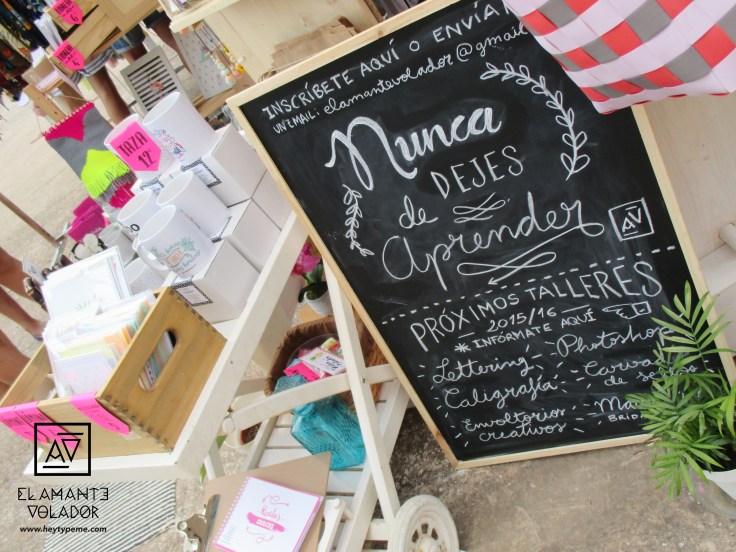 INSCRÍBETE AQUÍ O ENVÍA
UN EMAIL: elamantevolador@gmail
Nunca
DEJES
de
Aprender
AV
PRÓXIMOS TALLERES
2015/16
* INFÓRMATE AQUÍ
Lettering - Photoshop
Caligrafía
de
Envoltorios
creativos
TAZA
12
6
AV
ELAMANTE
VOLADOR
www.heytypeme.com